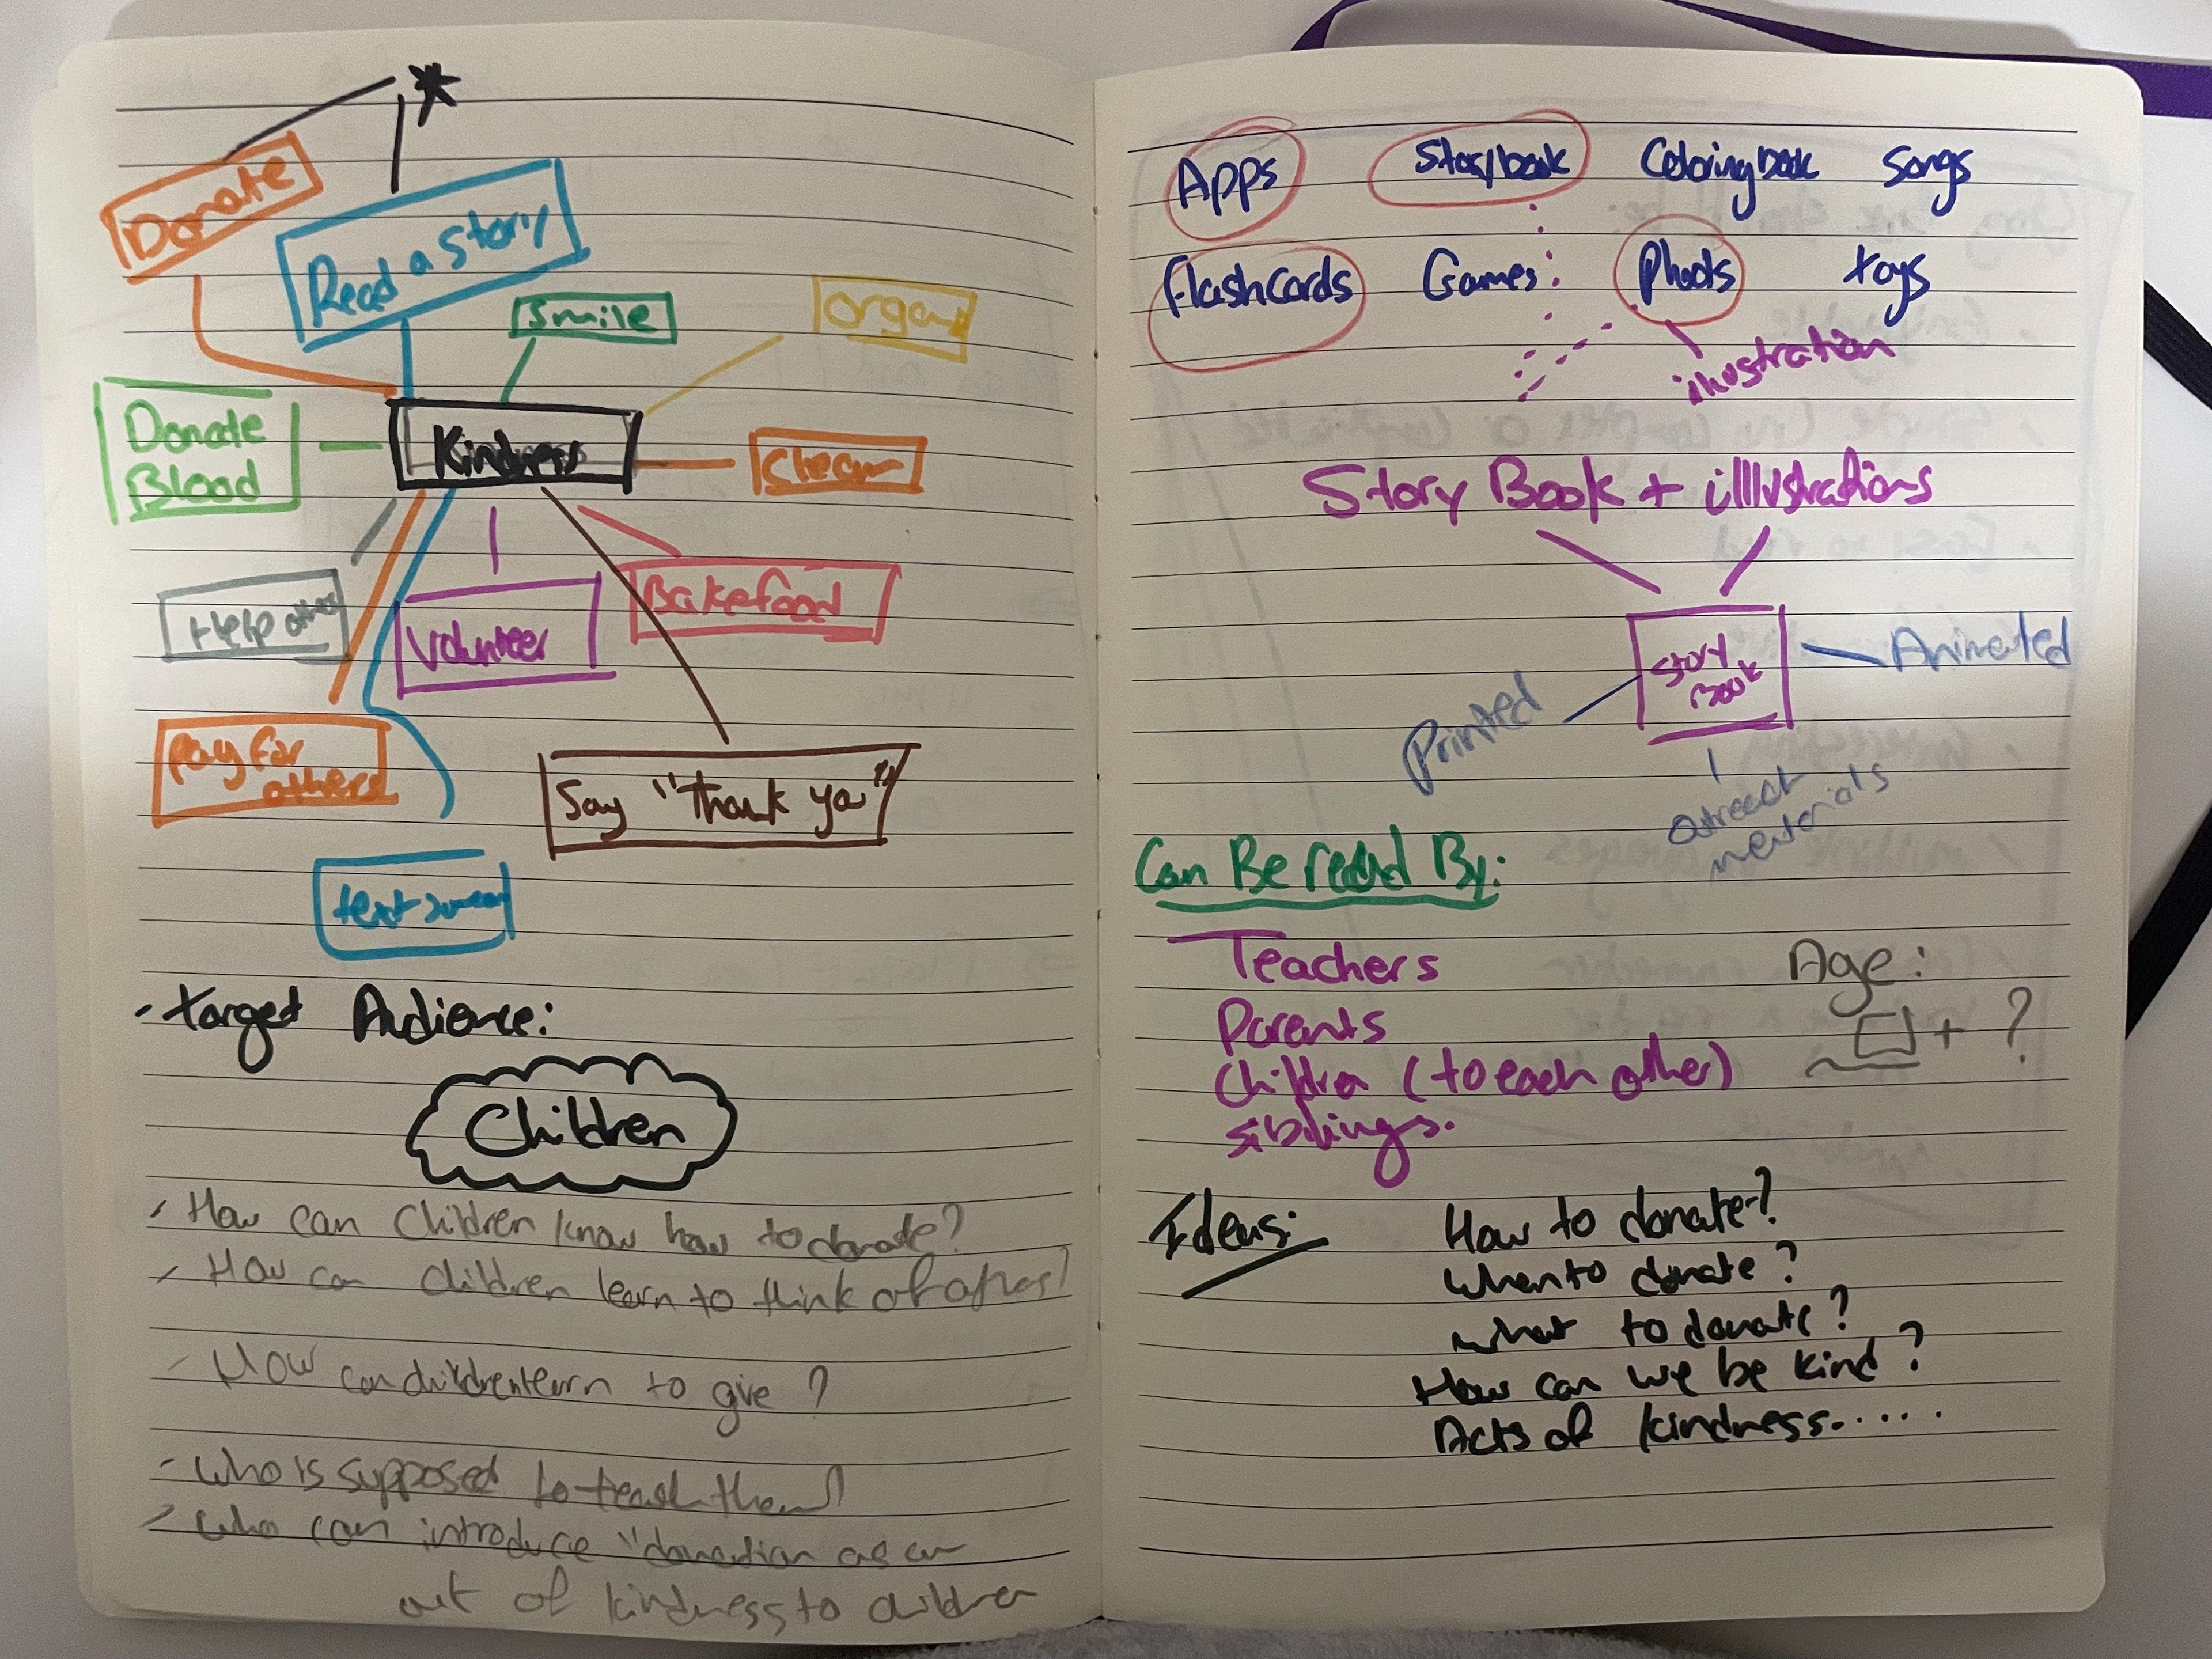 Donate
Read a Story
Smile
organ
Donate
Blood
Kindness
Clean
Help other
Volunteer
Bake food
Pay for
others
Say "Thank you"
text
- Target Audience:
Children
- How can Children know how to donate?
- How can children learn to think of others?
- How can children learn to give ?
- who is supposed to teach them?
- who can introduce "donation as an
act of kindness to children
Apps Storybook Coloring book Songs
Flashcards Games Photos toys
illustration
Story Book + illlustrations
Story
Book
Animated
Printed
outreach
materials
Can Be readd By:
Teachers
Parents
Children (to each other)
siblings.
Age :
+ ?
Ideas:
How to donate?
when to donate ?
what to donate ?
How can we be kind ?
Acts of kindness......